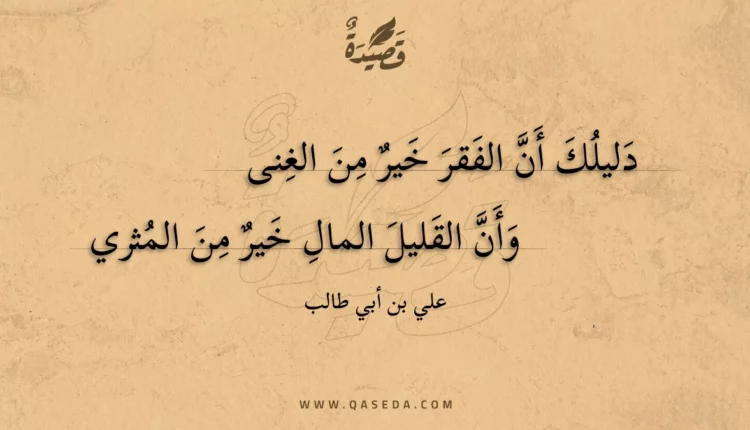 قَصِيدَةٌ
دَليلُكَ أَنَّ الفَقرَ خَيرٌ مِنَ الغِنى
وَأَنَّ القَليلَ المالِ خَيرٌ مِنَ المُثري
علي بن أبي طالب
WWW.QASEDA.COM